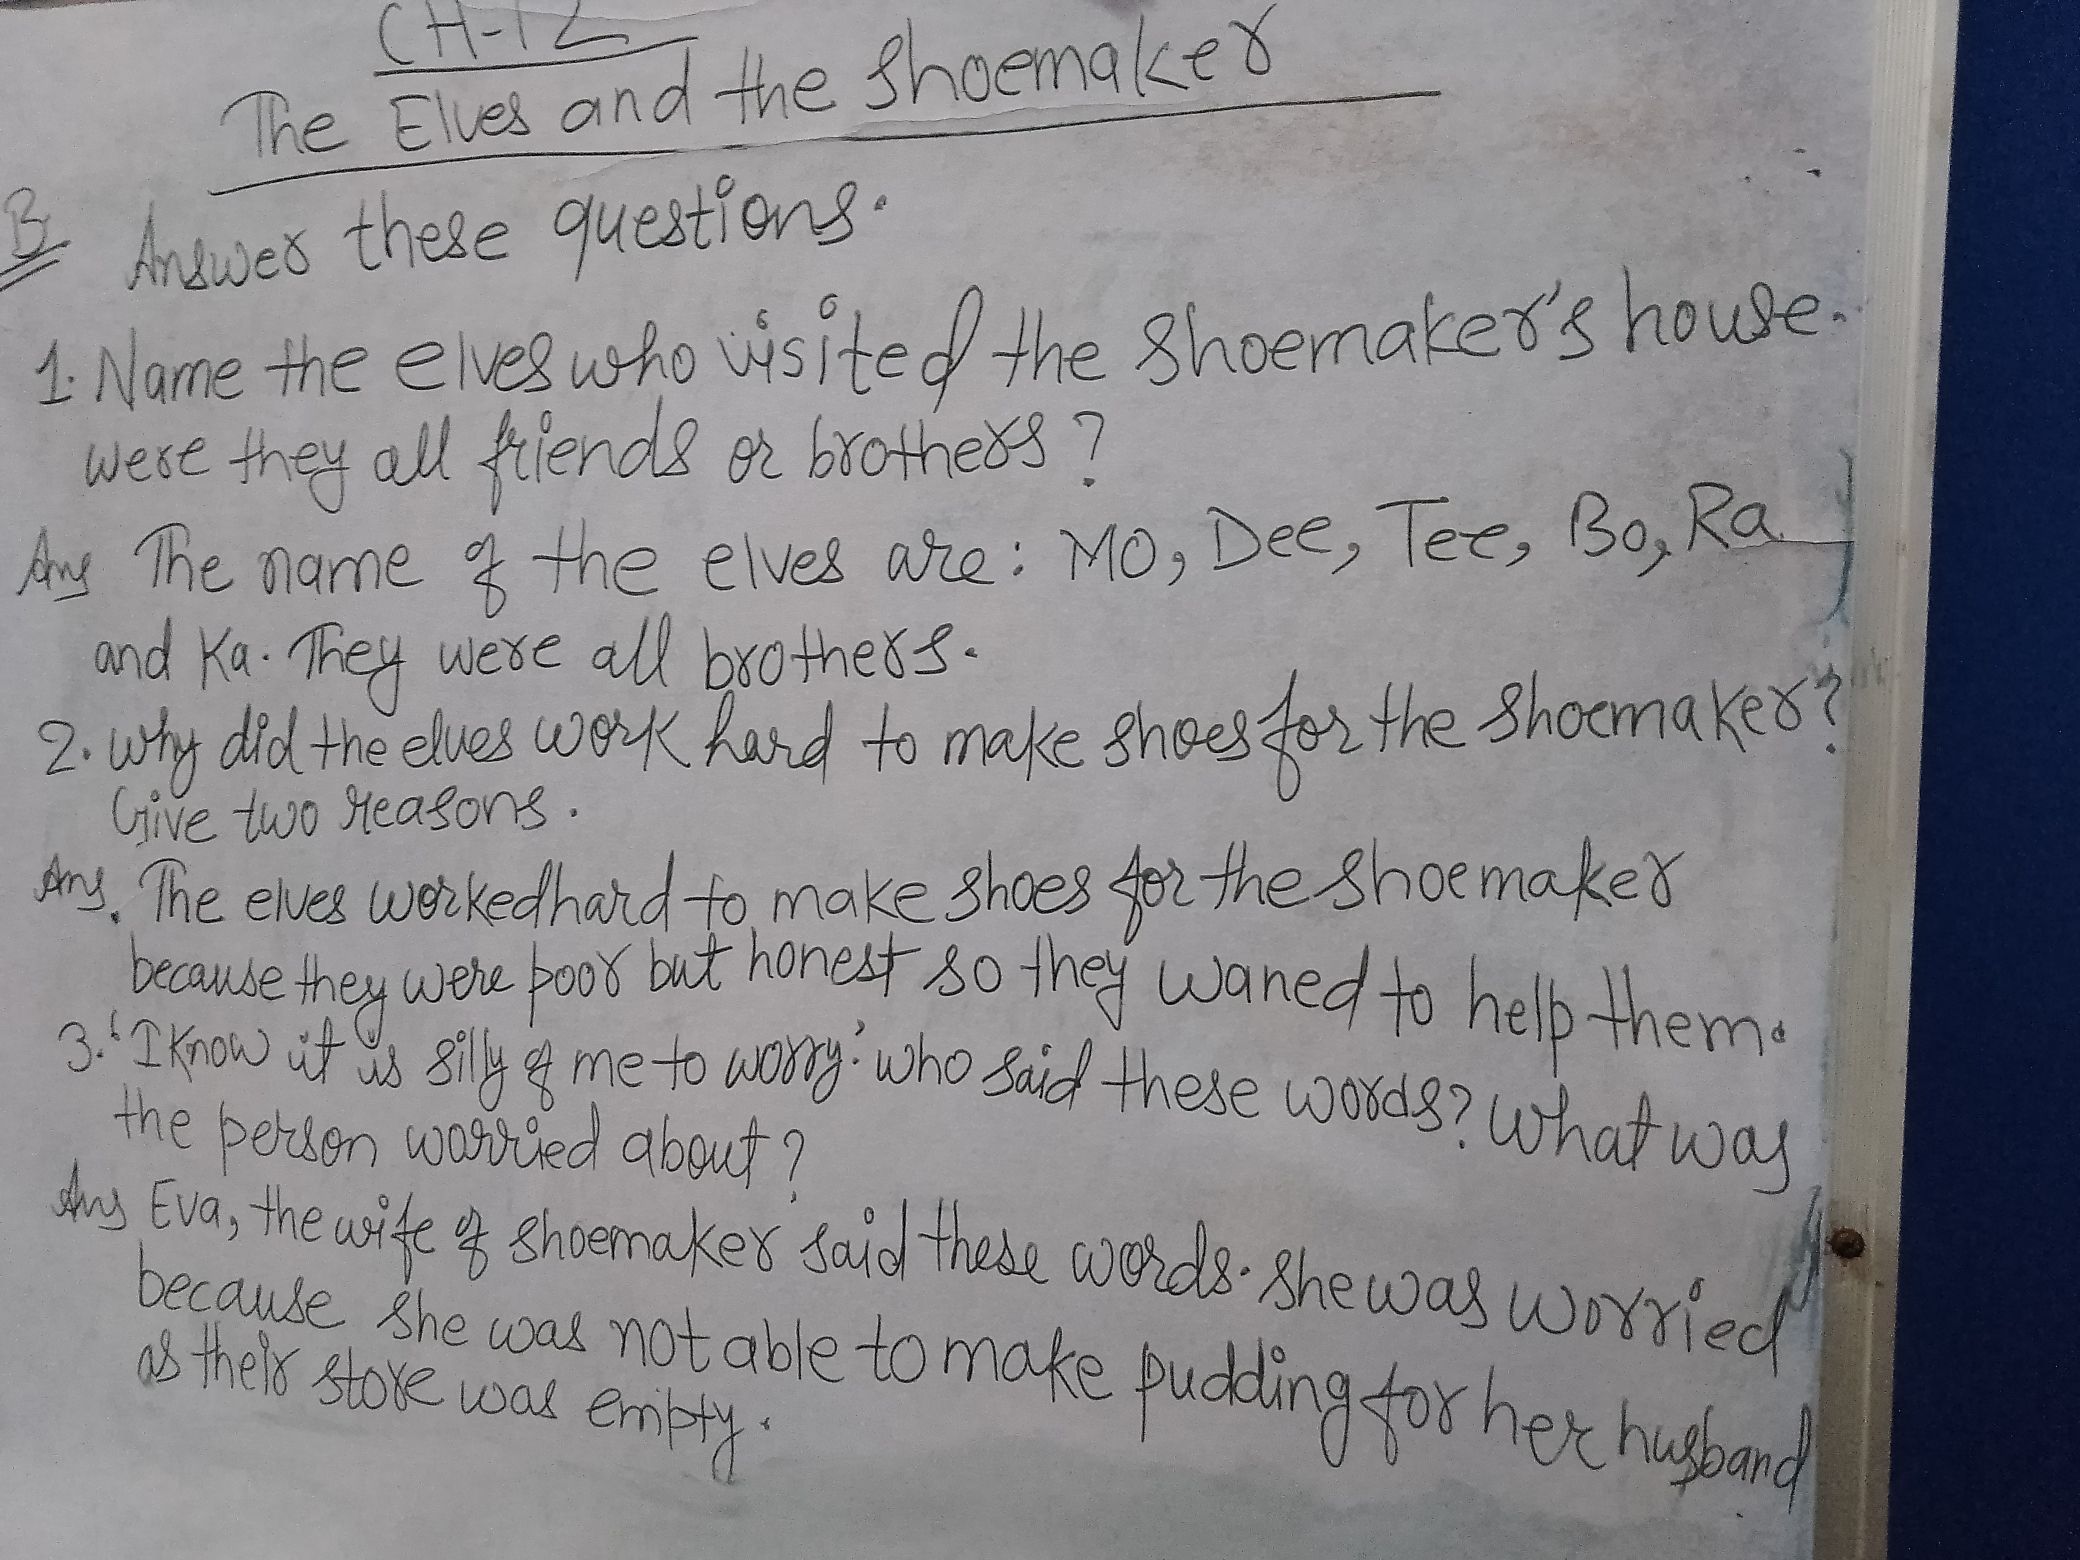 CH-12
The Elves and the Shoemaker
B Answer these questions.
1. Name the elves who visited the shoemaker's house.
were they all friends or brothers?
Ans The name of the elves are: MO, Dee, Tee, Bo, Ra
and Ka. They were all brothers.
2. why did the elves work hard to make shoes for the shoemaker?
Give two reasons.
Ans. The elves worked hard to make shoes for the shoemaker
because they were poor but honest so they waned to help them.
3. 'I know it is silly of me to worry.' who said these words? What was
the person worried about?
Ans Eva, the wife of shoemaker said these words. she was worried
because she was not able to make pudding for her husband
as their store was empty.